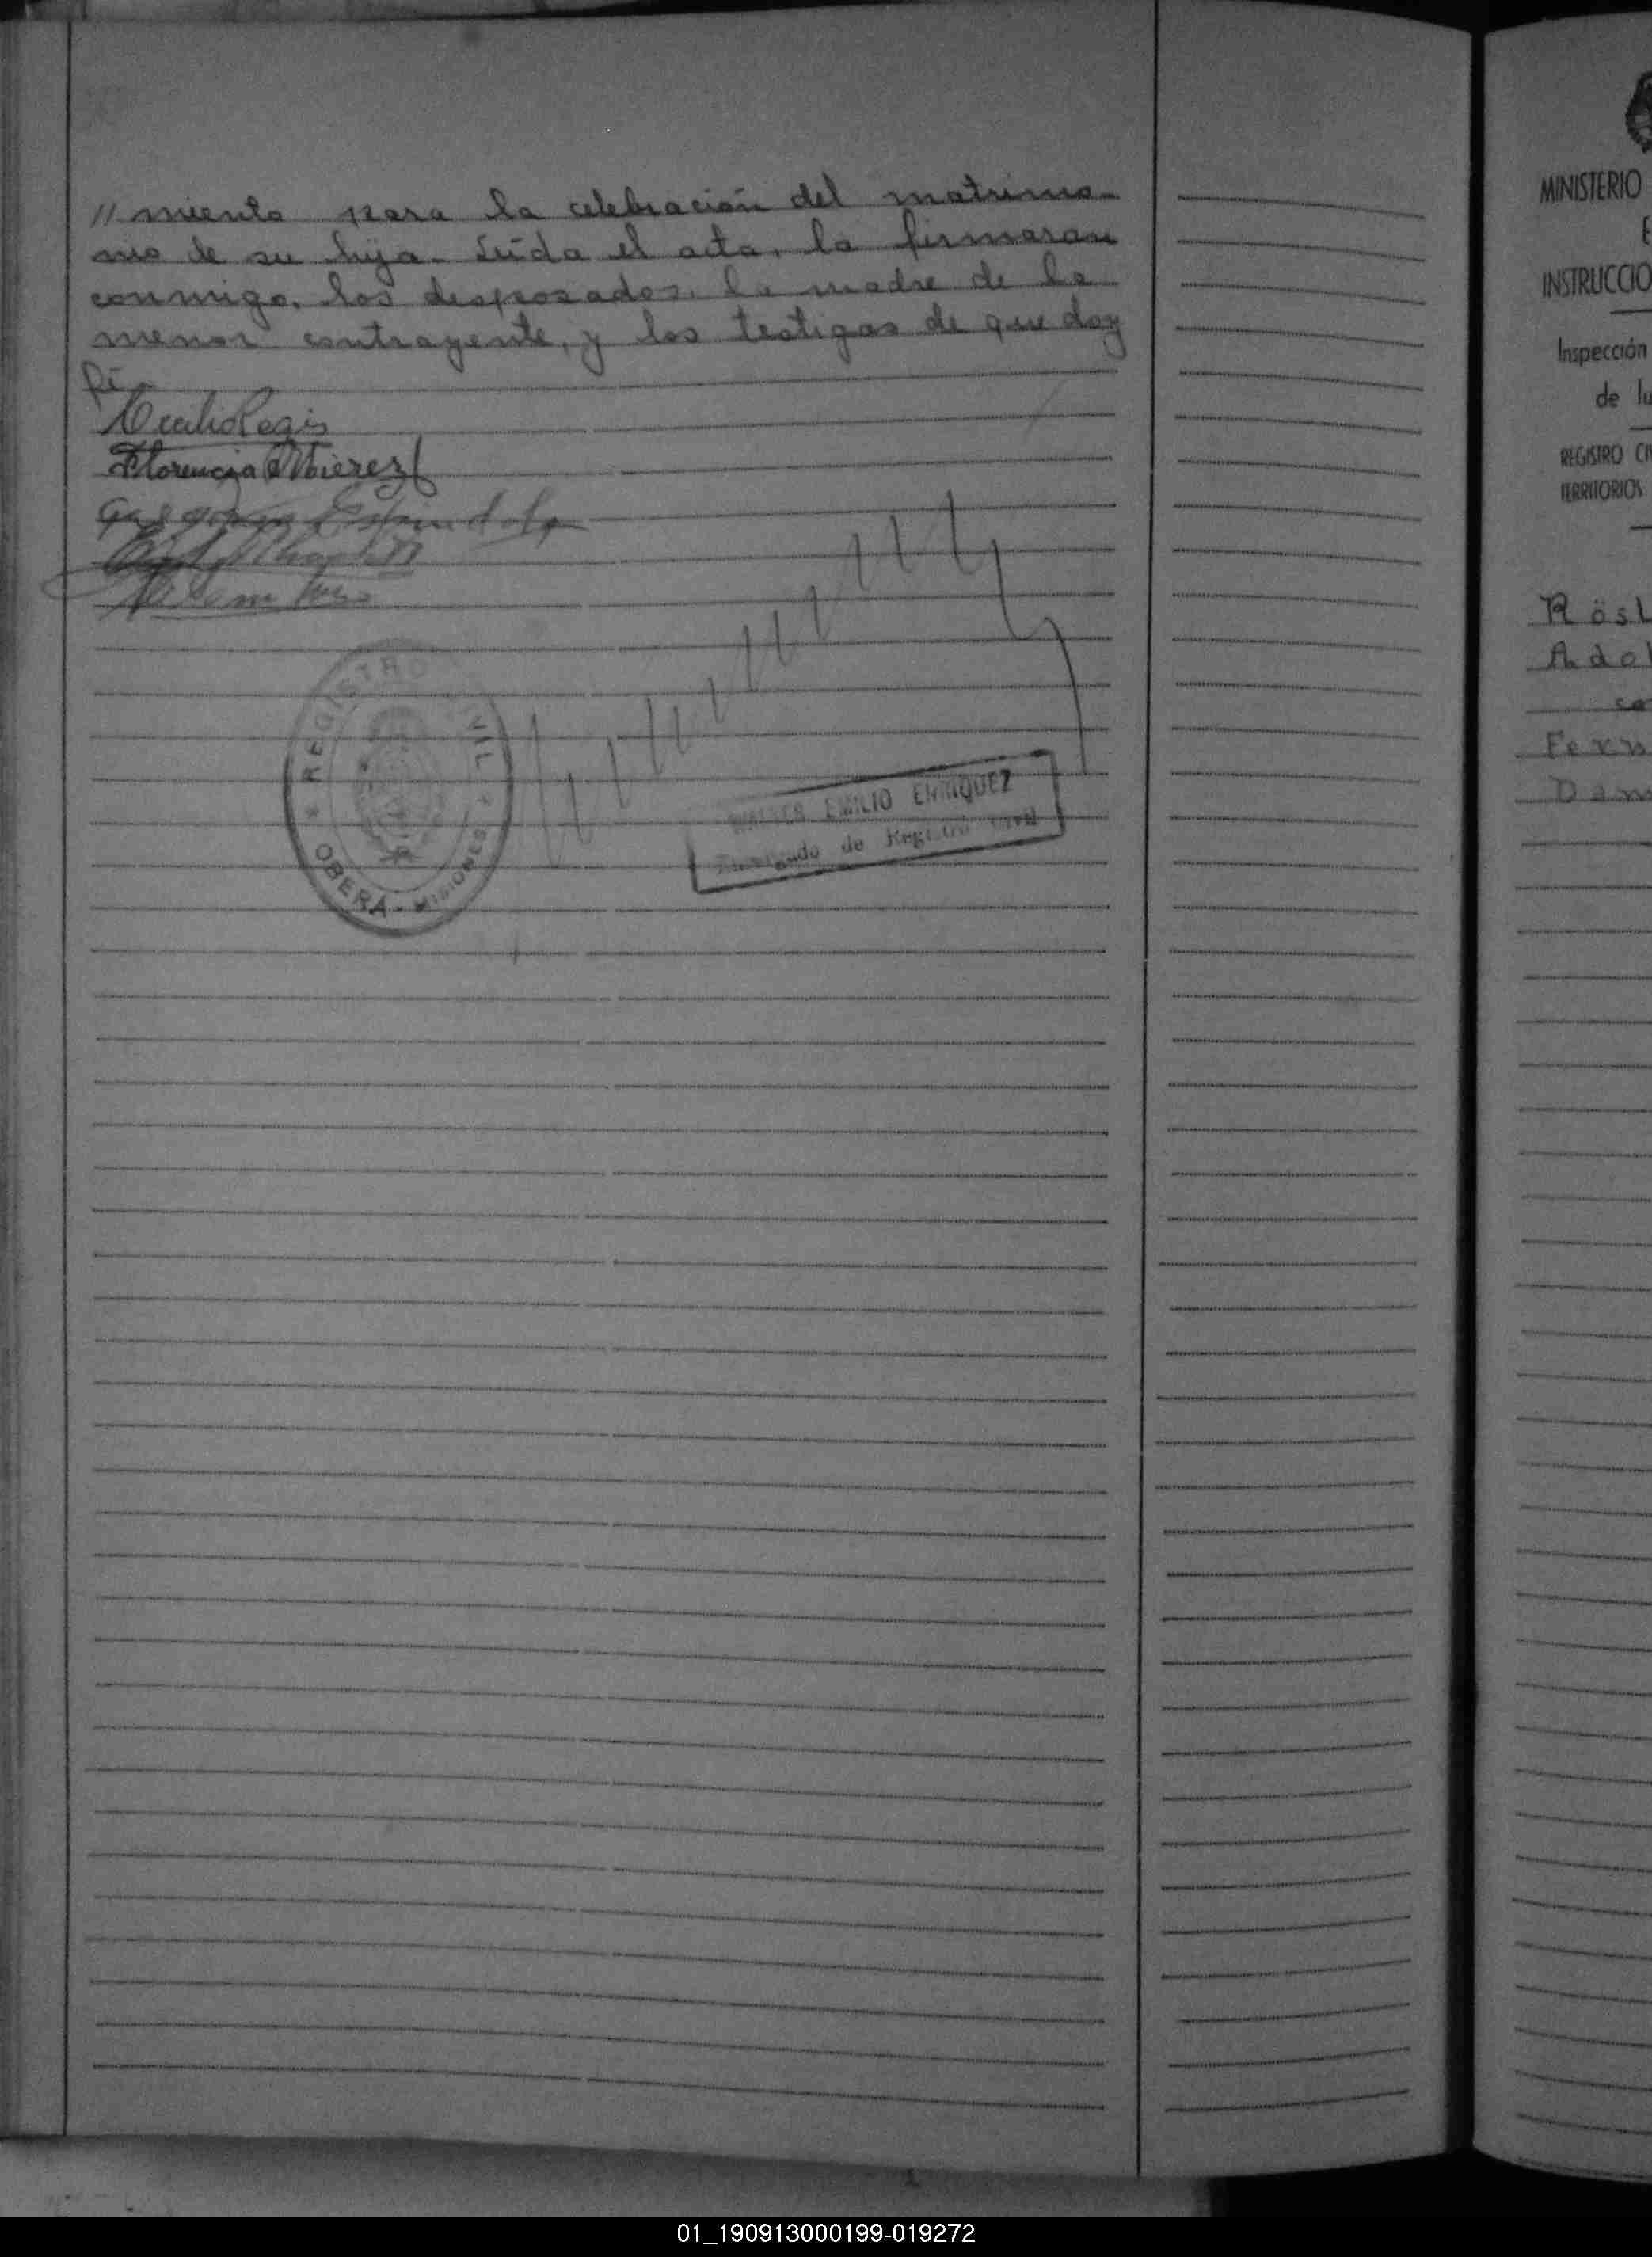 // miento para la celebración del matrimo-
nio de su hija. Leída el acta, la firmaron
conmigo, los desposados, la madre de la
menor contrayente, y los testigos de que doy
fé.
Florencia
Espindola
REGISTRO CIVIL
OBERA - MISIONES
WALTER EMILIO ENRIQUEZ
Encargado de Registro Civil
MINISTERIO
E
INSTRUCCIO
Inspección
de Ju
REGISTRO CI
TERRITORIOS
Rösl
Adol
co
Fern
Dan
01_190913000199-019272